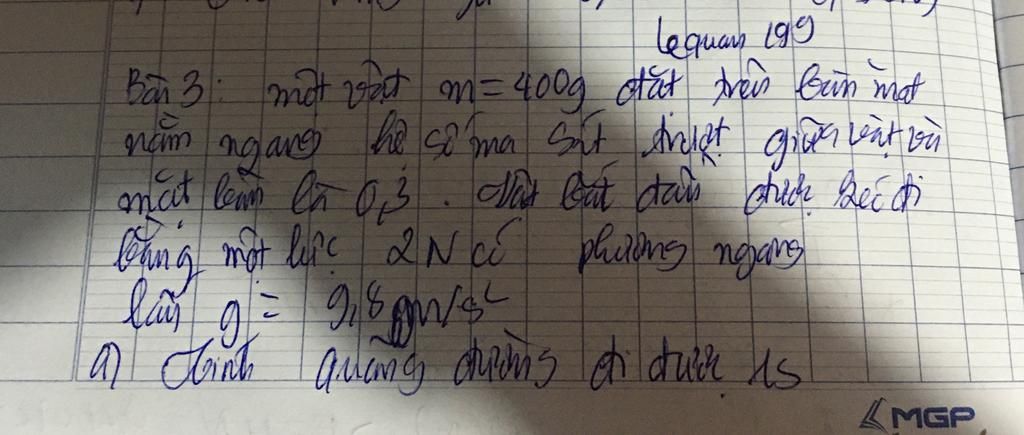 lequan 199
Bài 3: một vật m = 400g đặt trên bàn một
nằm ngang hệ số ma sát trượt giữa vật và
mặt bàn là 0,3. Vật bắt đầu được kéo đi
bằng một lực 2N có phương ngang
lấy g = 9,8 m/s²
a) tính quãng đường đi được 1s
MGP